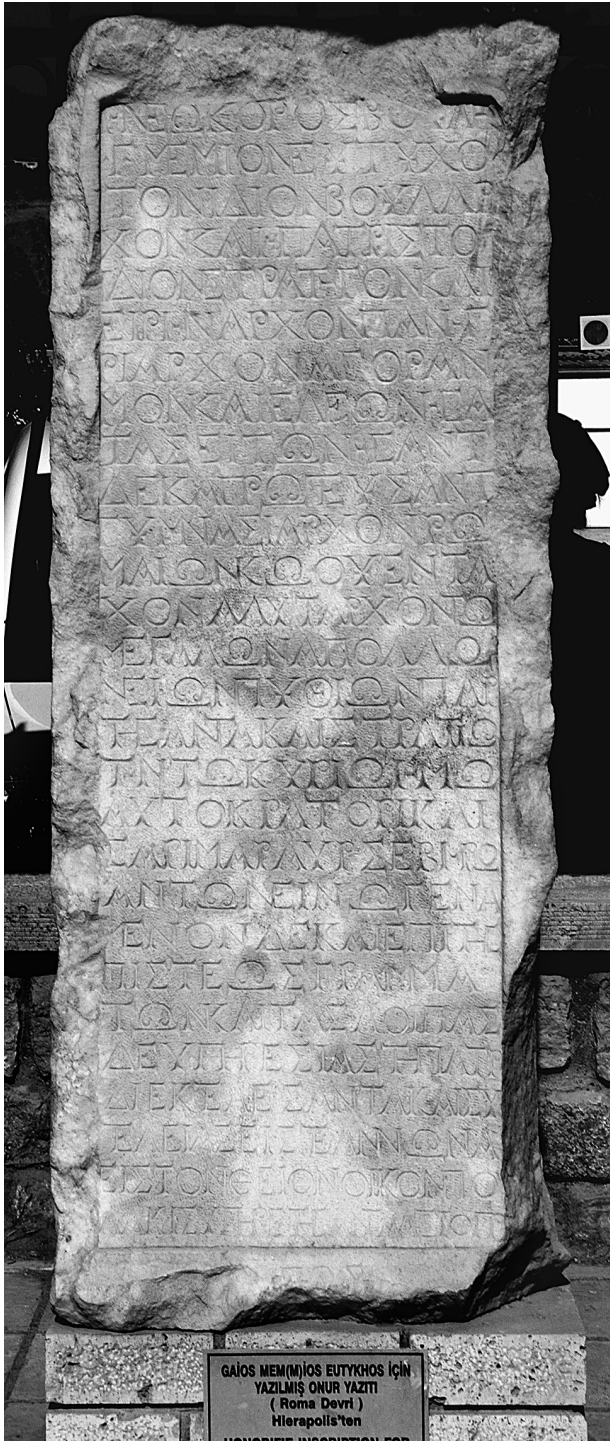 Η ΝΕΩΚΟΡΟΣ ΒΟΥΛΗ
Γ ΜΕΜΙΟΝ ΕΥΤΥΧΟ
ΤΟΝ ΙΔΙΟΝ ΒΟΥΛΑΡ
ΧΟΝ ΚΑΙ Η ΠΑΤΡΙΣ ΤΟ
ΙΔΙΟΝ ΣΤΡΑΤΗΓΟΝ ΚΑΙ
ΕΙΡΗΝΑΡΧΟΝ ΠΑΝΗΓ
ΡΙΑΡΧΟΝ ΑΓΟΡΑΝ
ΜΟΝ ΚΑΙ ΕΛΕΩΝΗΣΑ
ΤΑ ΣΕΙΤΩΝΗΣΑΝΤ
ΔΕΚΑΠΡΩΤΕΥΣΑΝΤ
ΓΥΜΝΑΣΙΑΡΧΟΝ ΡΩ
ΜΑΙΩΝ ΚΩΟΥΕΝΤΑ
ΧΟΝ ΑΛΥΤΑΡΧΟΝ ΤΩ
ΜΕΓΑΛΩΝ ΑΠΟΛΛΩ
ΝΕΙΩΝ ΠΥΘΙΩΝ
ΣΤΡΑΤΙΩ
ΤΗΝ ΤΩ ΚΥΡΙΩ ΗΜΩ
ΑΥΤΟΚΡΑΤΟΡΙ ΚΑΙ
ΣΑΡΙ ΜΑΡ ΑΥΡ ΣΕΒΗΡΩ
ΑΝΤΩΝΕΙΝΩ ΓΕΝΑ
ΜΕΝΟΝ ΔΕ ΚΑΙ ΕΠΙ ΤΗΣ
ΠΙΣΤΕΩΣ ΓΡΑΜΜΑ
ΤΩΝ ΚΑΙ ΤΑΣ ΛΟΙΠΑΣ
ΔΕ ΥΠΗΡΕΣΙΑΣ ΤΗ ΠΑΤΡΙ
ΔΙ ΕΚΤΕΛΕΣΑΝΤΑ ΚΑΙ
ΕΙΣ ΤΕ ΑΝΝΩΝΑ
ΕΙΣ ΤΟΝ ΘΕΙΟΝ ΟΙΚΟΝ ΠΟ
GAİOS MEM(M)İOS EUTYKHOS İÇİN
YAZILMIŞ ONUR YAZITI
( Roma Devri )
Hierapolis'ten
HONORIFIE INSCRIPTION FOR